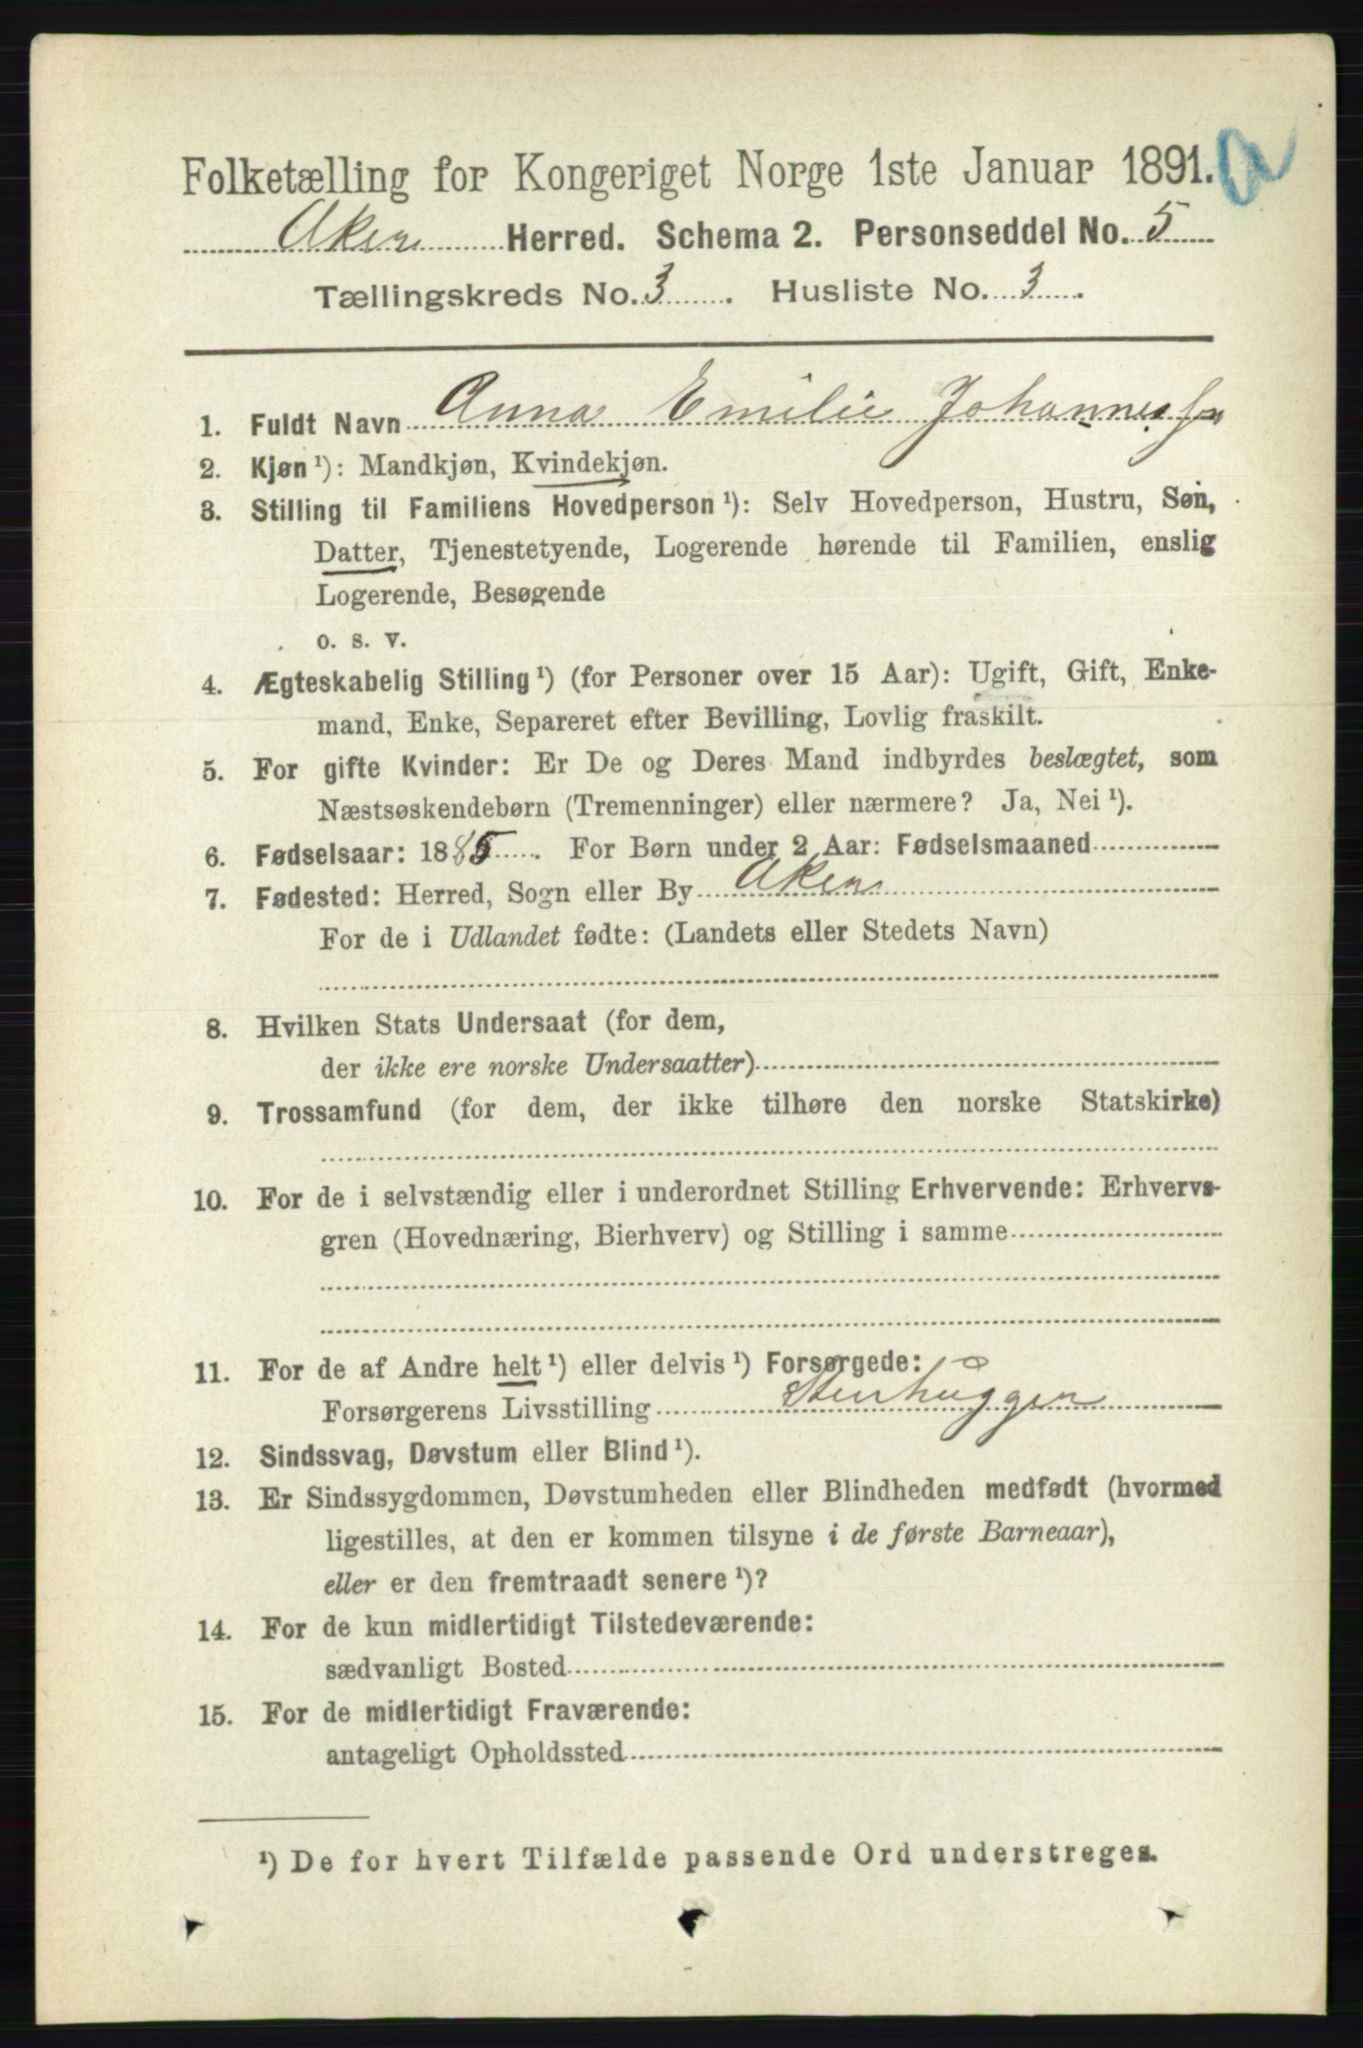 Folketælling for Kongeriget Norge 1ste Januar 1891. a
Aker Herred. Schema 2. Personseddel No. 5
Tællingskreds No. 3. Husliste No. 3.
1. Fuldt Navn Anna Emilie Johannessen
2. Kjøn ¹): Mandkjøn, Kvindekjøn.
3. Stilling til Familiens Hovedperson ¹): Selv Hovedperson, Hustru, Søn,
Datter, Tjenestetyende, Logerende hørende til Familien, enslig
Logerende, Besøgende
o. s. v.
4. Ægteskabelig Stilling ¹) (for Personer over 15 Aar): Ugift, Gift, Enke-
mand, Enke, Separeret efter Bevilling, Lovlig fraskilt.
5. For gifte Kvinder: Er De og Deres Mand indbyrdes beslægtet, som
Næstsøskendebørn (Tremenninger) eller nærmere? Ja, Nei ¹).
6. Fødselsaar: 1885. For Børn under 2 Aar: Fødselsmaaned
7. Fødested: Herred, Sogn eller By Aker
For de i Udlandet fødte: (Landets eller Stedets Navn)
8. Hvilken Stats Undersaat (for dem,
der ikke ere norske Undersaatter)
9. Trossamfund (for dem, der ikke tilhøre den norske Statskirke)
10. For de i selvstændig eller i underordnet Stilling Erhvervende: Erhvervs-
gren (Hovednæring, Bierhverv) og Stilling i samme
11. For de af Andre helt ¹) eller delvis ¹) Forsørgede:
Forsørgerens Livsstilling Stenhugger
12. Sindssvag, Døvstum eller Blind ¹).
13. Er Sindssygdommen, Døvstumheden eller Blindheden medfødt (hvormed
ligestilles, at den er kommen tilsyne i de første Barneaar),
eller er den fremtraadt senere ¹)?
14. For de kun midlertidigt Tilstedeværende:
sædvanligt Bosted
15. For de midlertidigt Fraværende:
antageligt Opholdssted
¹) De for hvert Tilfælde passende Ord understreges.